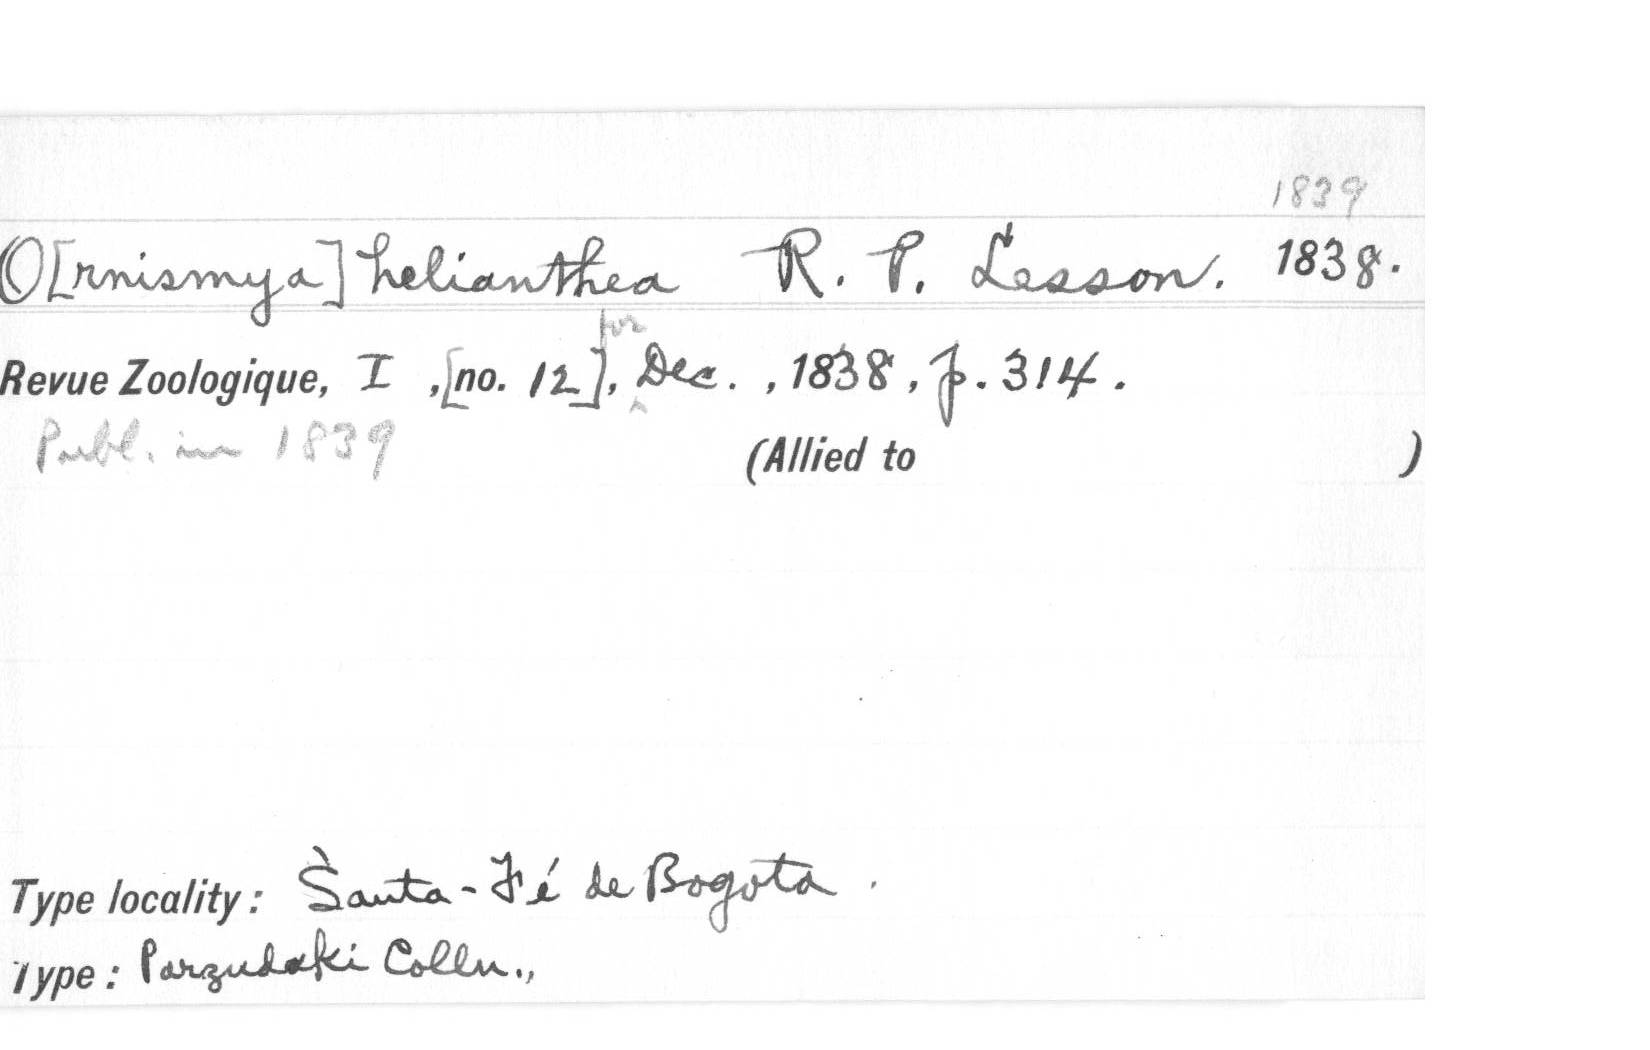 1839
O[rnismya] helianthea R. P. Lesson. 1838.
for
Revue Zoologique, I, [no. 12], Dec., 1838, p. 314.
Publ. in 1839
(Allied to )
Type locality: Santa-Fé de Bogota.
Type: Parzudaki Colln.,